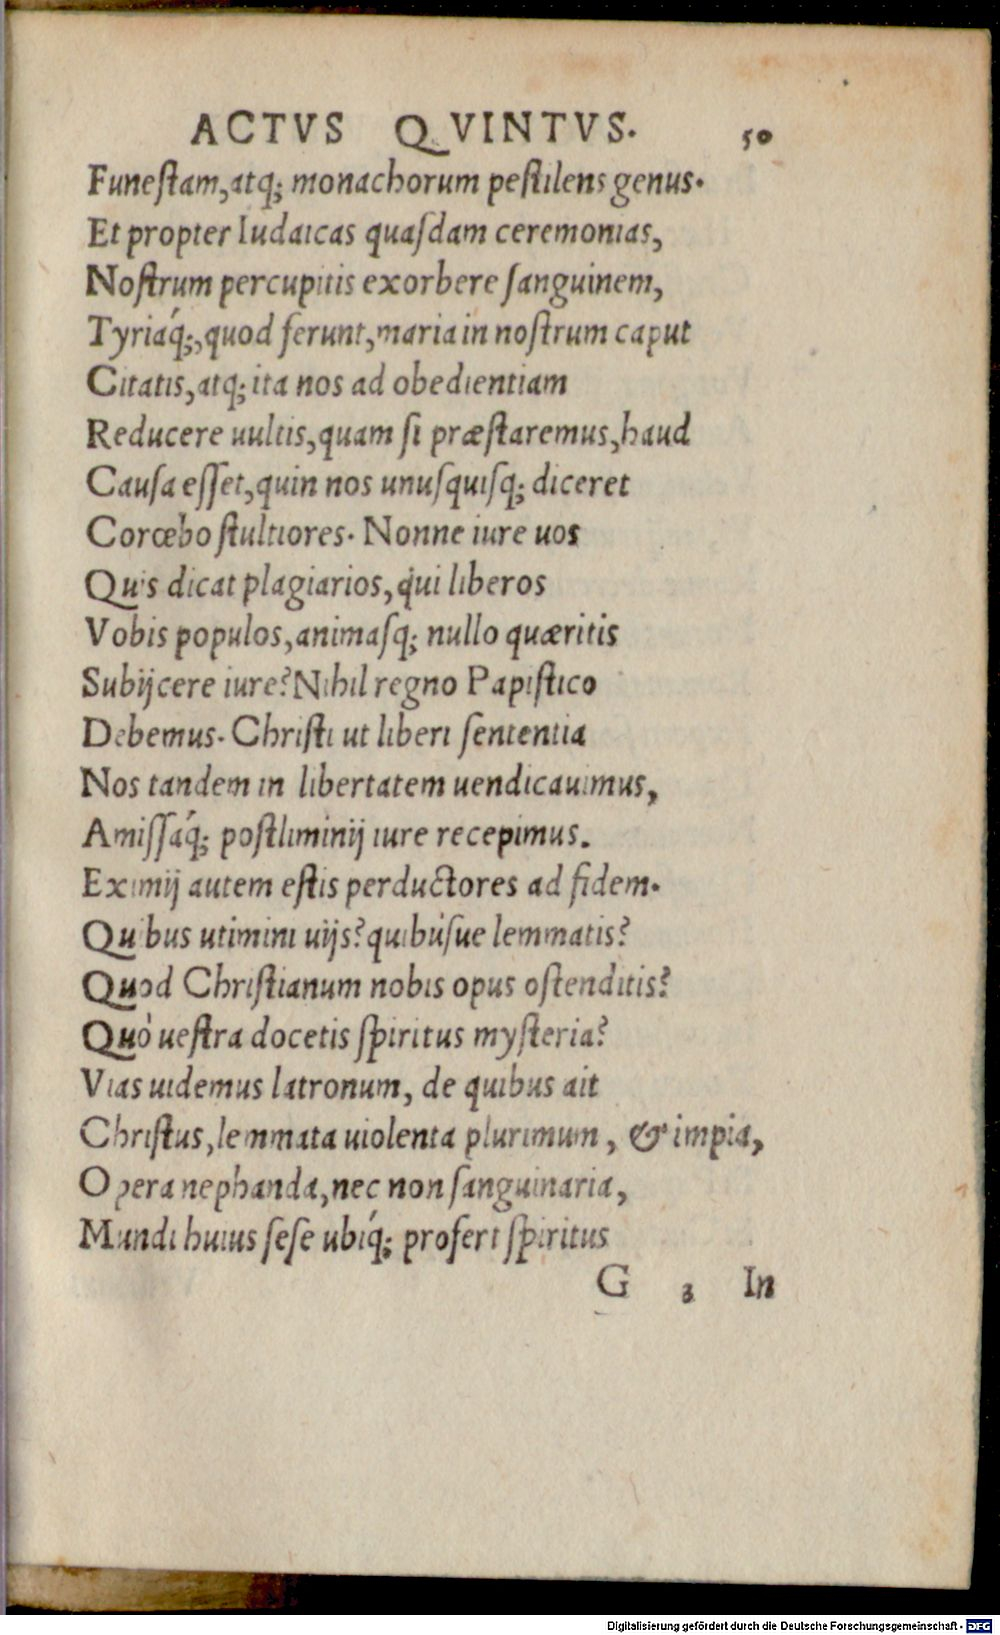 ACTVS QVINTVS. 50
Funeſtam, atq; monachorum peſtilens genus.
Et propter Iudaicas quaſdam ceremonias,
Noſtrum percupitis exorbere ſanguinem,
Tyriáq;, quod ferunt, maria in noſtrum caput
Citatis, atq; ita nos ad obedientiam
Reducere uultis, quam ſi præſtaremus, haud
Cauſa eſſet, quin nos unuſquiſq; diceret
Corœbo ſtultiores. Nonne iure uos
Quis dicat plagiarios, qui liberos
Vobis populos, animaſq; nullo quæritis
Subijcere iure? Nihil regno Papiſtico
Debemus. Chriſti ut liberi ſententia
Nos tandem in libertatem uendicauimus,
Amiſſáq; poſtliminij iure recepimus.
Eximij autem eſtis perductores ad fidem.
Quibus utimini uijs? quibúſue lemmatis?
Quod Chriſtianum nobis opus oſtenditis?
Quò ueſtra docetis ſpiritus myſteria?
Vias uidemus latronum, de quibus ait
Chriſtus, lemmata uiolenta plurimum, & impia,
Opera nephanda, nec non ſanguinaria,
Mundi huius ſeſe ubíq; profert ſpiritus
G 3 In
Digitalisierung gefördert durch die Deutsche Forschungsgemeinschaft - DFG